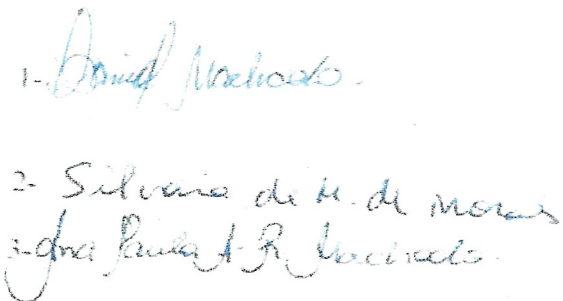 1- Daniel Machado.
2- Silvana de M. de Moraes
3- Ana Paula A. R. Machado.